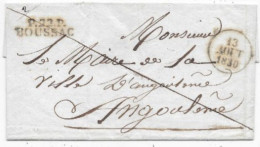 P.22.P.
BOUSSAC
Monsieur
13
AOUT
1830
Le Maire de La
Ville D'angoulême
Angoulême